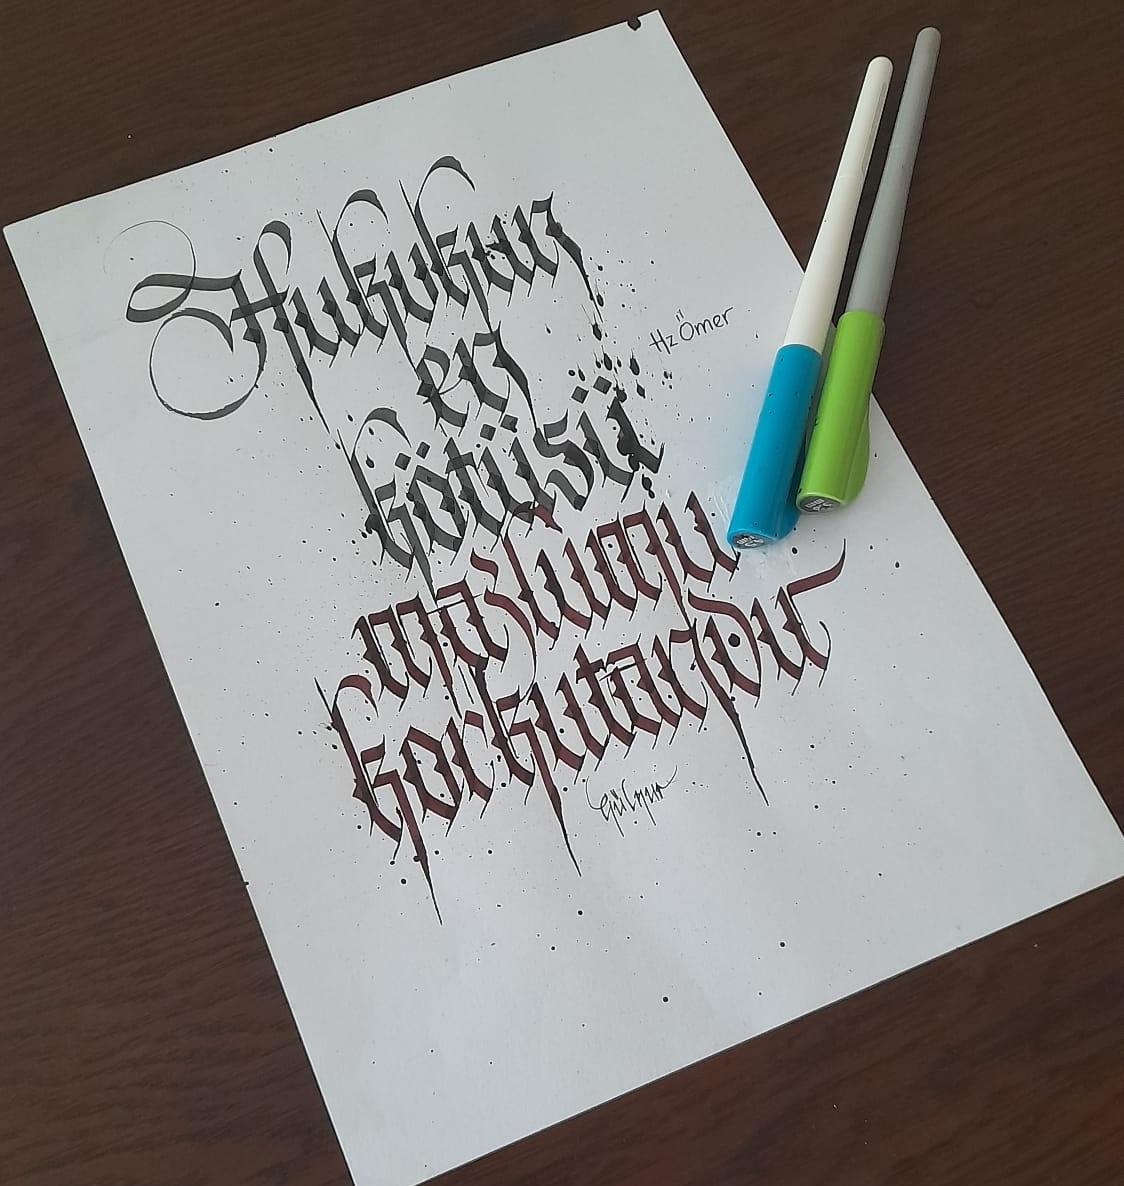 Hukukun
en
kötüsü
mazlumu
korkutandır
Hz Ömer
Gülnur